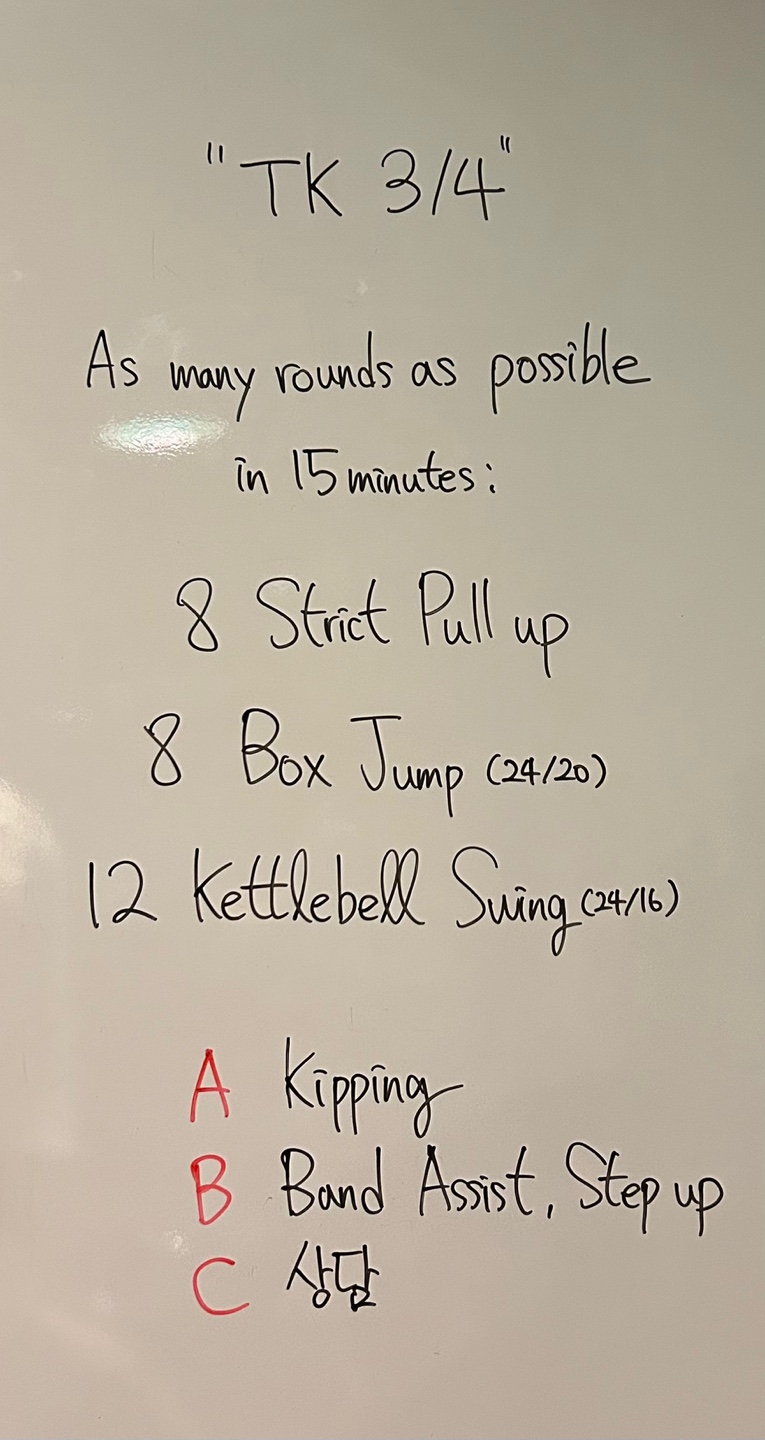 "TK 3/4"
As many rounds as possible
in 15 minutes:
8 Strict Pull up
8 Box Jump (24/20)
12 Kettlebell Swing (24/16)
A Kipping
B Band Assist, Step up
C 상담